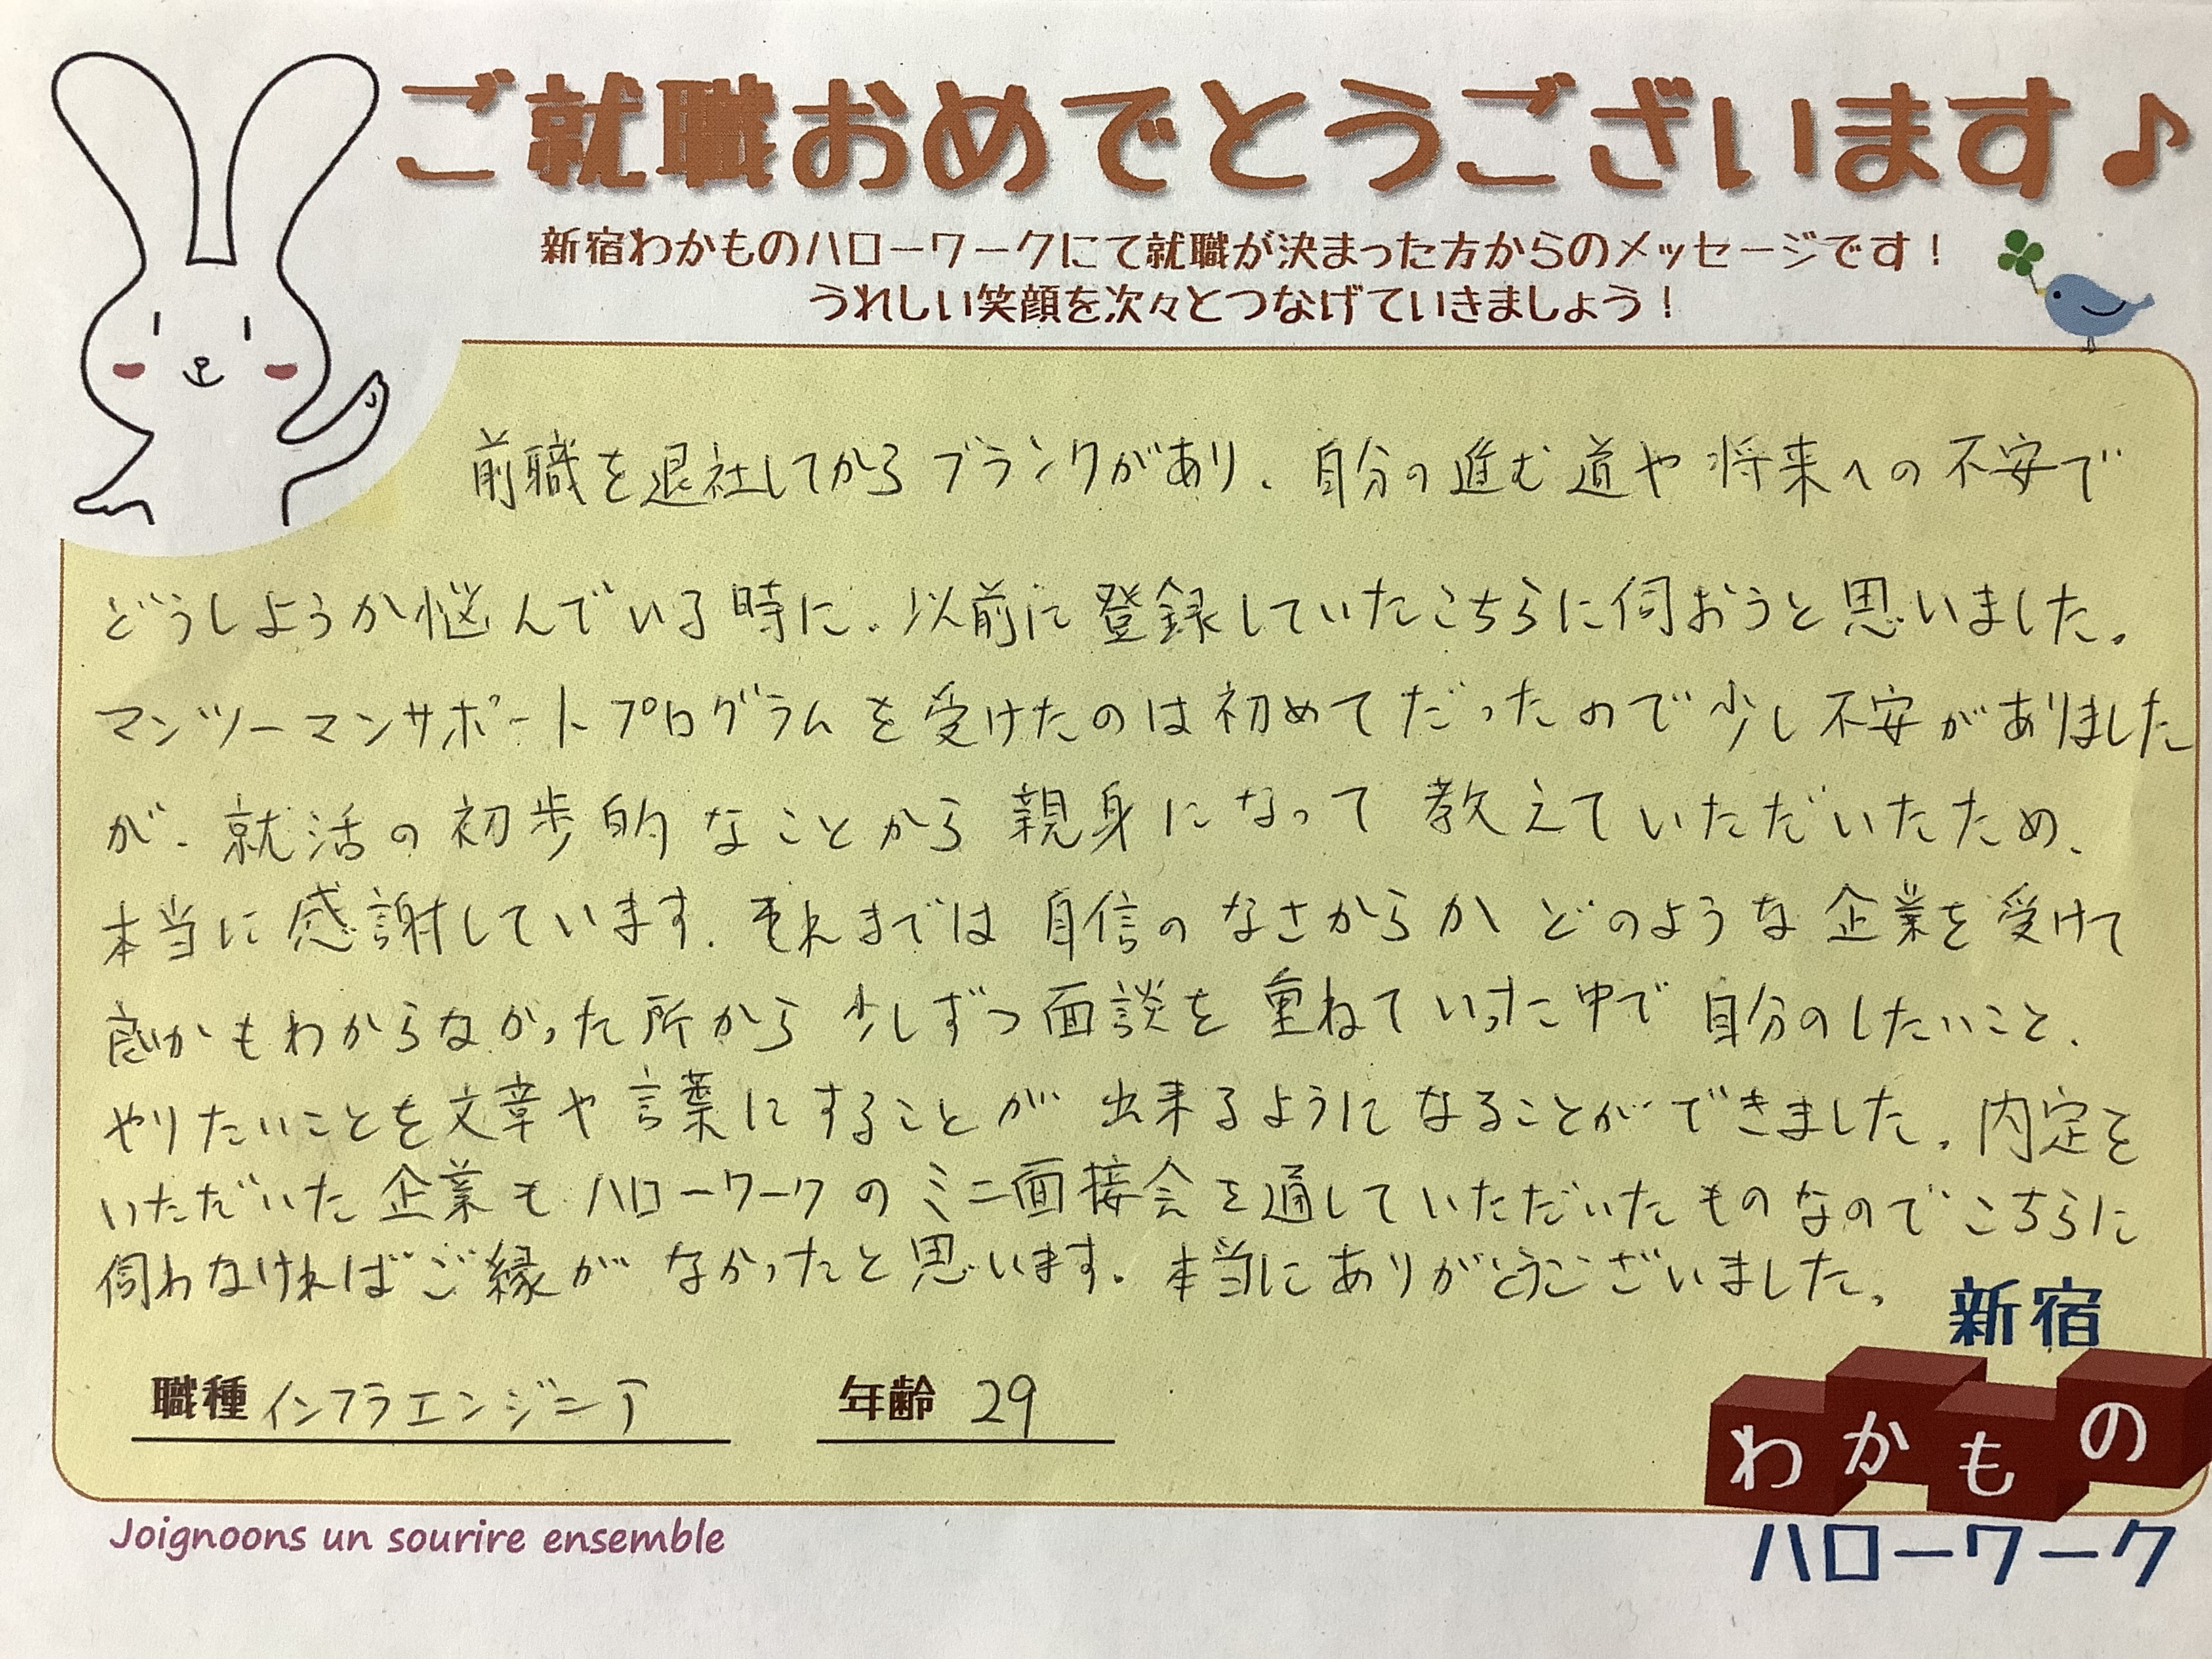 ご就職おめでとうございます♪
新宿わかものハローワークにて就職が決まった方からのメッセージです！
うれしい笑顔を次々とつなげていきましょう！
前職を退社してからブランクがあり、自分の進む道や将来への不安で
どうしようか悩んでいる時に、以前に登録していたこちらに伺おうと思いました。
マンツーマンサポートプログラムを受けたのは初めてだったので少し不安がありました
が、就活の初歩的なことから親身になって教えていただいたため、
本当に感謝しています。それまでは自信のなさからかどのような企業を受けて
良いかもわからなかった所から少しずつ面談を重ねていった中で自分のしたいこと、
やりたいことを文章や言葉にすることが出来るようになることができました。内定を
いただいた企業もハローワークのミニ面接会を通していただいたものなのでこちらに
伺わなければご縁がなかったと思います。本当にありがとうございました。
職種 インフラエンジニア 年齢 29
新宿
わかもの
ハローワーク
Joignoons un sourire ensemble